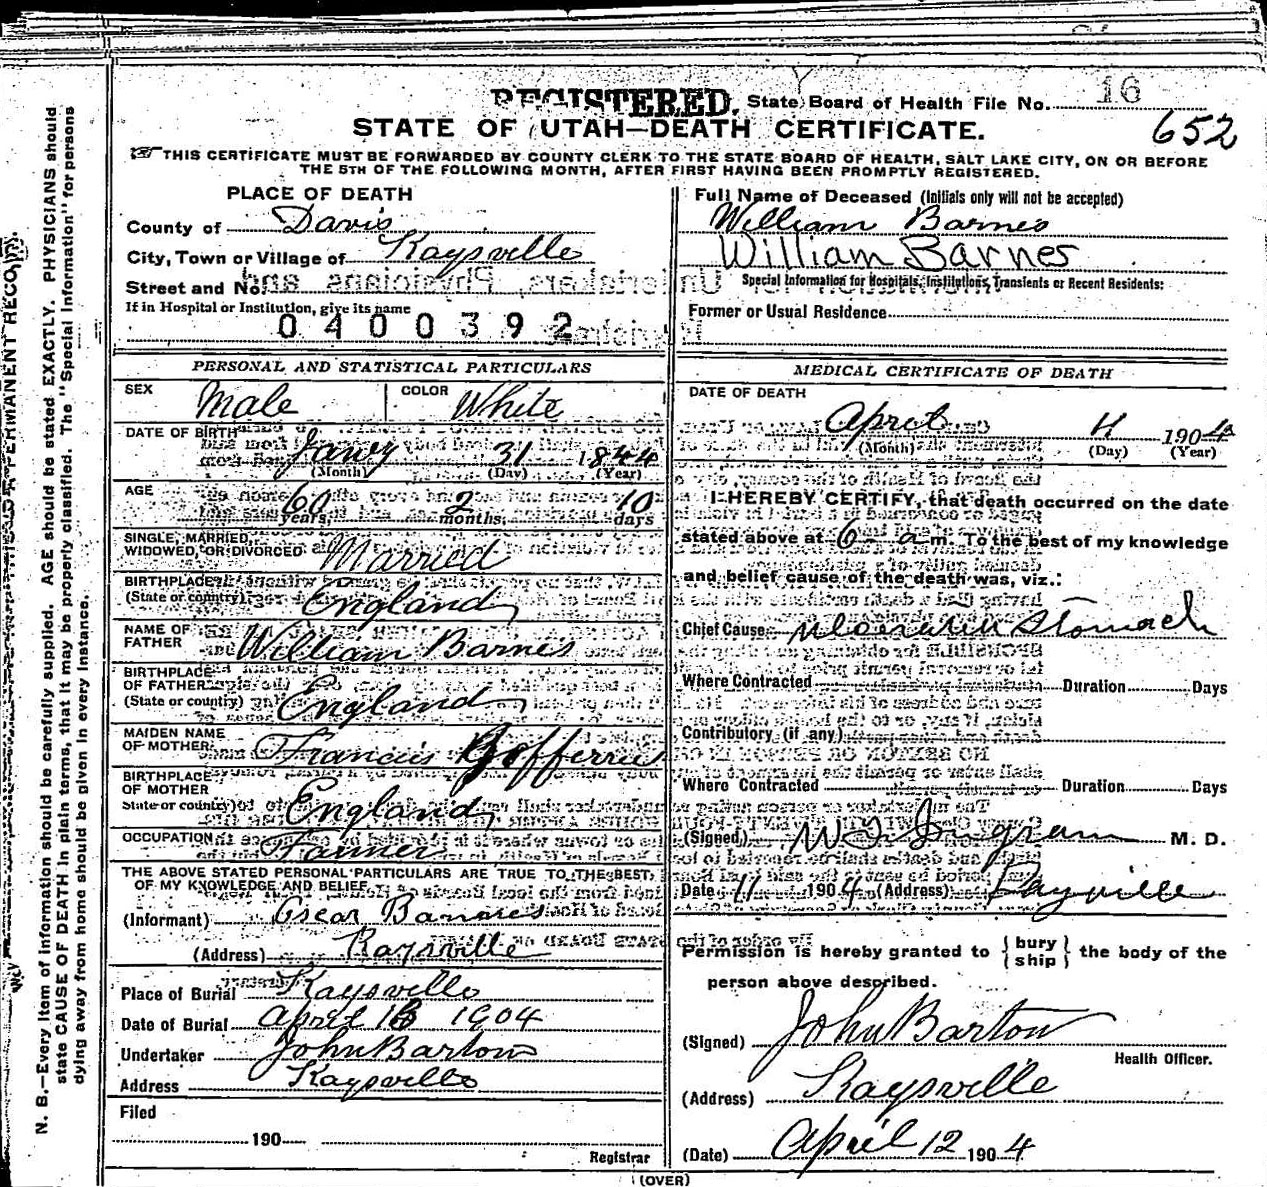 REGISTERED. State Board of Health File No. 16
652
STATE OF UTAH—DEATH CERTIFICATE.
THIS CERTIFICATE MUST BE FORWARDED BY COUNTY CLERK TO THE STATE BOARD OF HEALTH, SALT LAKE CITY, ON OR BEFORE
THE 5TH OF THE FOLLOWING MONTH, AFTER FIRST HAVING BEEN PROMPTLY REGISTERED.
PLACE OF DEATH
County of Davis
City, Town or Village of Kaysville
Street and No.
If in Hospital or Institution, give its name
0400392
Full Name of Deceased (Initials only will not be accepted)
William Barnes
William Barnes
Special Information for Hospitals, Institutions, Transients or Recent Residents:
Former or Usual Residence
PERSONAL AND STATISTICAL PARTICULARS
SEX Male COLOR White
DATE OF BIRTH Jany 31 1844
(Month) (Day) (Year)
AGE 60 years, 2 months, 10 days
SINGLE, MARRIED,
WIDOWED, OR DIVORCED Married
BIRTHPLACE
(State or country) England
NAME OF
FATHER William Barnes
BIRTHPLACE
OF FATHER
(State or country) England
MAIDEN NAME
OF MOTHER Francis
BIRTHPLACE
OF MOTHER
State or country) England
OCCUPATION Farmer
THE ABOVE STATED PERSONAL PARTICULARS ARE TRUE TO THE BEST
OF MY KNOWLEDGE AND BELIEF
(Informant) Oscar
(Address) Kaysville
Place of Burial Kaysville
Date of Burial April 1904
Undertaker John Barton
Address Kaysville
Filed
190
Registrar
MEDICAL CERTIFICATE OF DEATH
DATE OF DEATH
April 11 1904
(Month) (Day) (Year)
I HEREBY CERTIFY, that death occurred on the date
stated above at 6 a m. To the best of my knowledge
and belief cause of the death was, viz.:
Chief Cause Stomach
Where Contracted Duration Days
Contributory (if any)
Where Contracted Duration Days
(Signed) Ingram M. D.
Date 11 1904 (Address) Kaysville
Permission is hereby granted to { bury ship } the body of the
person above described.
(Signed) John Barton
Health Officer.
(Address) Kaysville
(Date) April 12 1904
(OVER)
PERMANENT RECORD.
N. B.—Every item of information should be carefully supplied. AGE should be stated EXACTLY. PHYSICIANS should
state CAUSE OF DEATH in plain terms, that it may be properly classified. The "Special Information" for persons
dying away from home should be given in every instance.